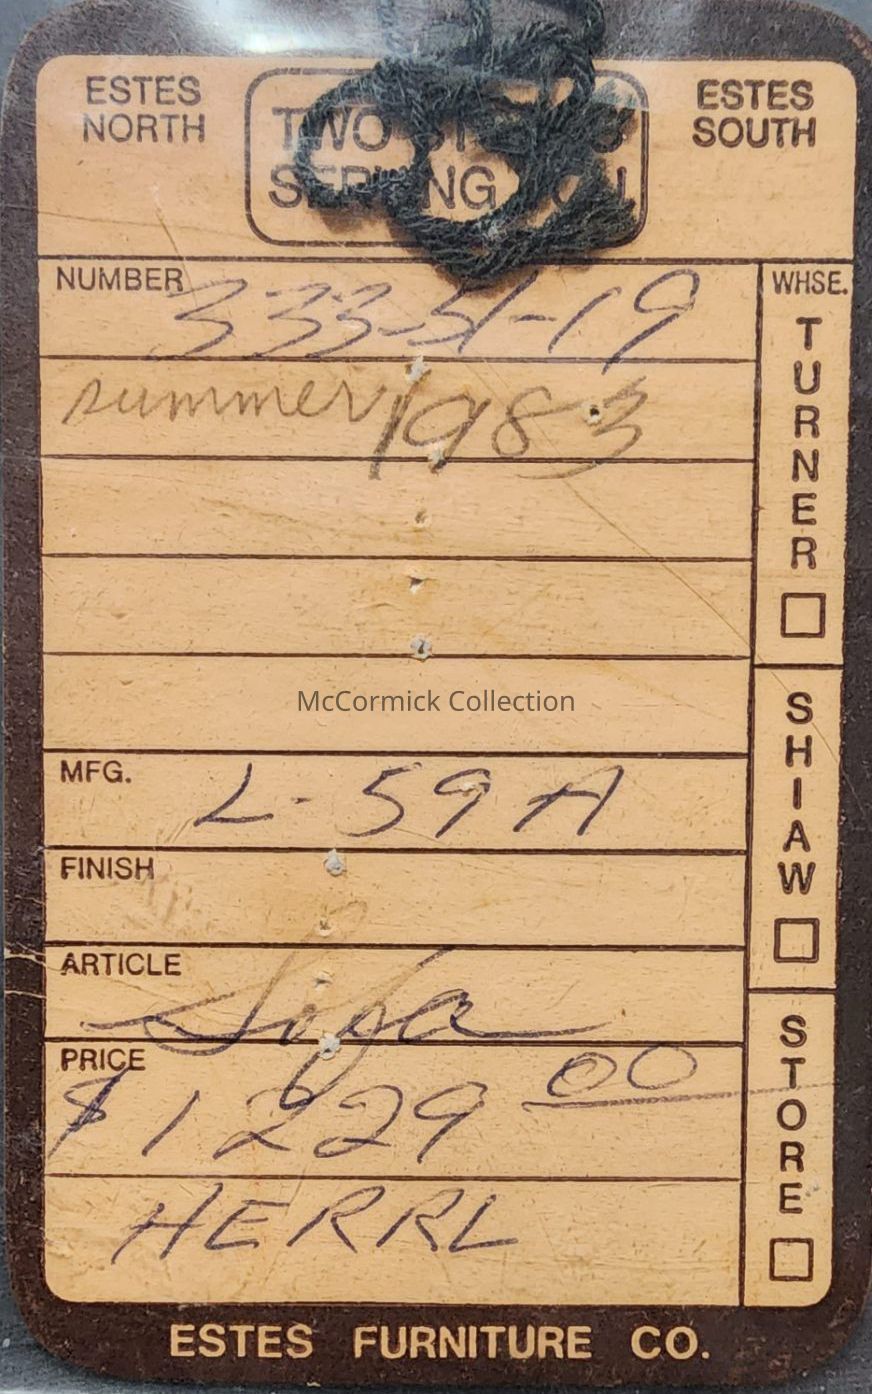 ESTES NORTH
TWO
SERVING
ESTES SOUTH
NUMBER 333-51-19
summer 1983
WHSE.
TURNER
McCormick Collection
SHIAW
MFG. L-59A
FINISH
ARTICLE Sofa
PRICE $1229 00
STORE
HERRL
ESTES FURNITURE CO.